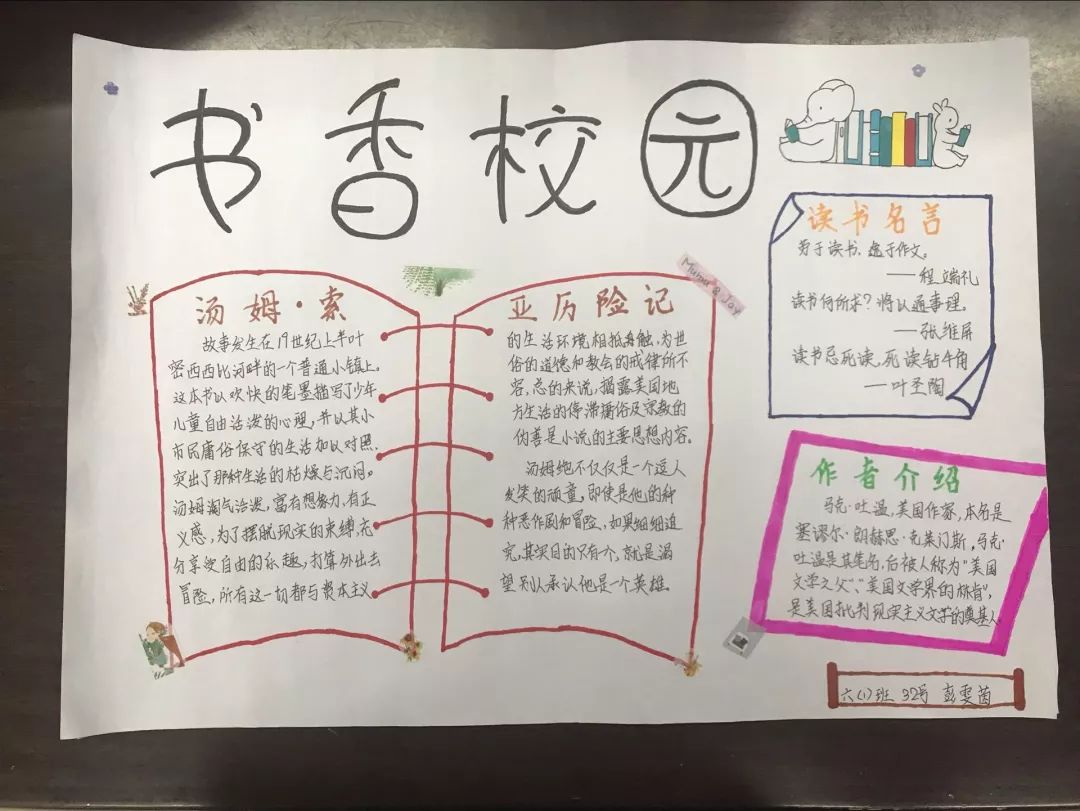 书香校园
汤姆·索
故事发生在19世纪上半叶
密西西比河畔的一个普通小镇上。
这本书以欢快的笔墨描写了少年
儿童自由活泼的心理，并以其小
市民庸俗保守的生活加以对照，
突出了那种生活的枯燥与沉闷。
汤姆淘气活泼，富有想象力，有正
义感，为了摆脱现实的束缚，充
分享受自由的乐趣，打算外出去
冒险，所有这一切都与资本主义
亚历险记
的生活环境相抵触，为世
俗的道德和教会的戒律所不
容，总的来说，揭露美国地
方生活的停滞庸俗及宗教的
伪善是小说的主要思想内容。
汤姆绝不仅仅是一个逗人
发笑的顽童，即使是他的种
种恶作剧和冒险，如果细细追
究，其实目的只有个，就是渴
望别人承认他是个英雄。
Mumu & Joy
读书名言
劳于读书，逸于作文。
——程端礼
读书何所求？将以通事理。
——张维屏
读书忌死读，死读钻牛角
——叶圣陶
作者介绍
马克·吐温，美国作家，本名是
塞谬尔·朗赫恩·克莱门斯，马克·
吐温是其笔名，后被人称为"美国
文学之父"、"美国文学界的林肯"，
是美国批判现实主义文学的奠基人
六(1)班 32号 彭雯茵